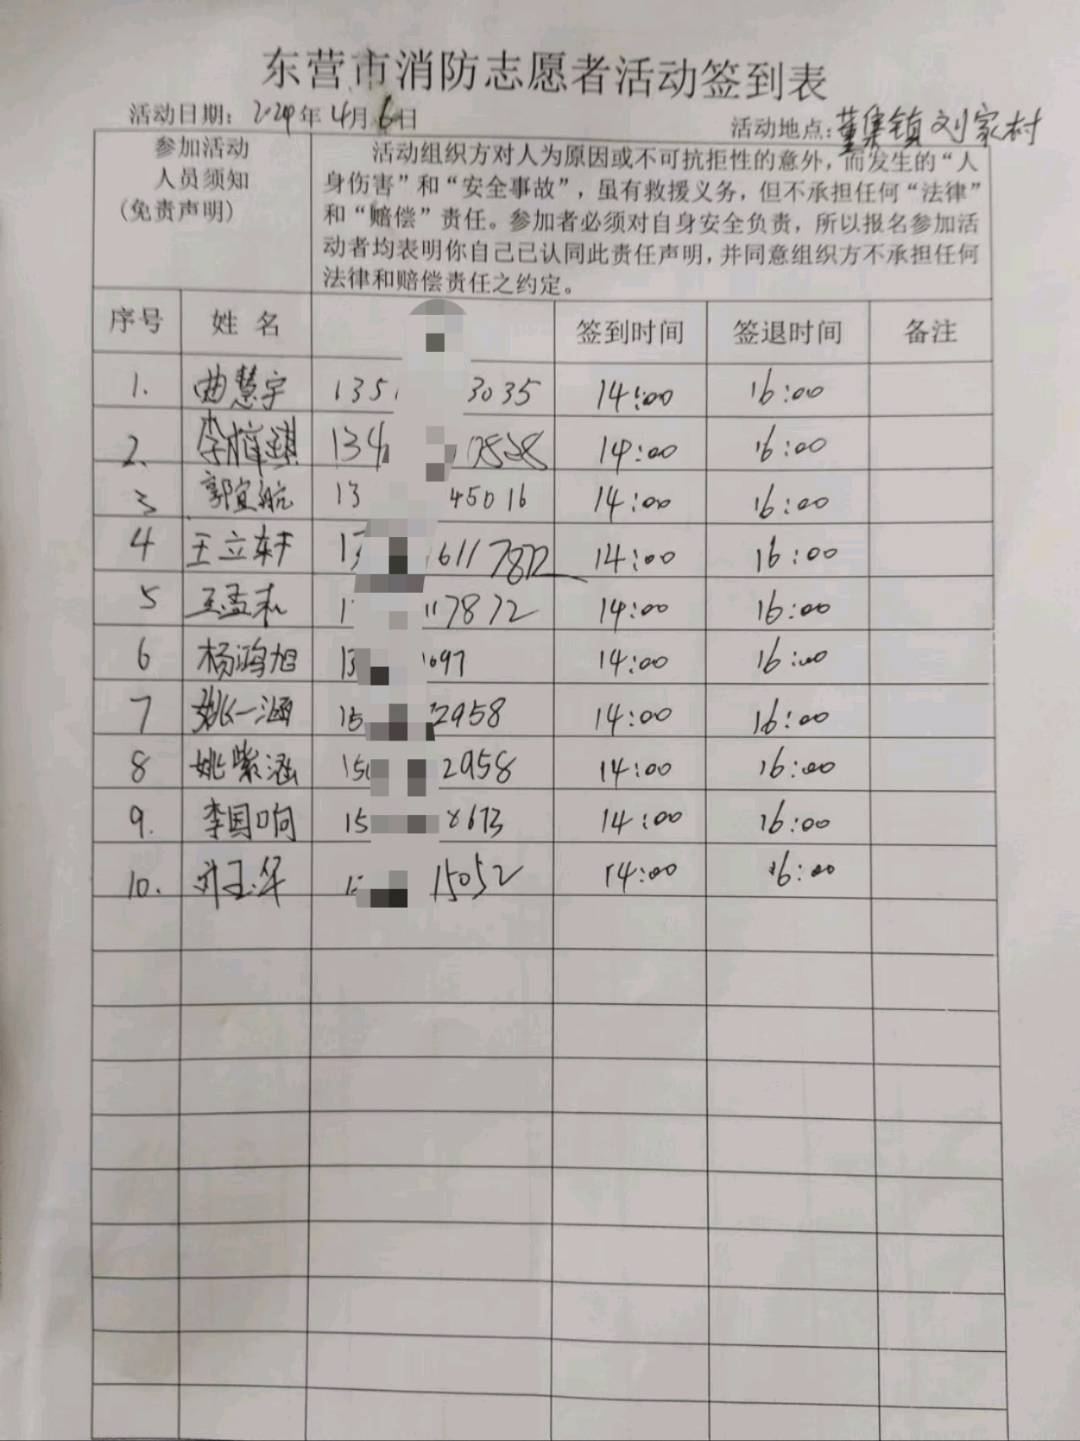 东营市消防志愿者活动签到表
活动日期：2024年4月6日 活动地点：董集镇刘家村
参加活动
人员须知
（免责声明）
活动组织方对人为原因或不可抗拒性的意外，而发生的“人
身伤害”和“安全事故”，虽有救援义务，但不承担任何“法律”
和“赔偿”责任。参加者必须对自身安全负责，所以报名参加活
动者均表明你自己已认同此责任声明，并同意组织方不承担任何
法律和赔偿责任之约定。
序号 姓名 签到时间 签退时间 备注
1. 曲慧宇 135 3035 14:00 16:00
2. 李 琪 134 14:00 16:00
3 郭宜航 13 45016 14:00 16:00
4 王立轩 13 611 7872 14:00 16:00
5 王孟禾 1 117872 14:00 16:00
6 杨鸿旭 13 1697 14:00 16:00
7 姚一涵 15 2958 14:00 16:00
8 姚紫涵 150 2958 14:00 16:00
9. 李国响 15 8673 14:00 16:00
10. 刘玉华 15052 14:00 16:00